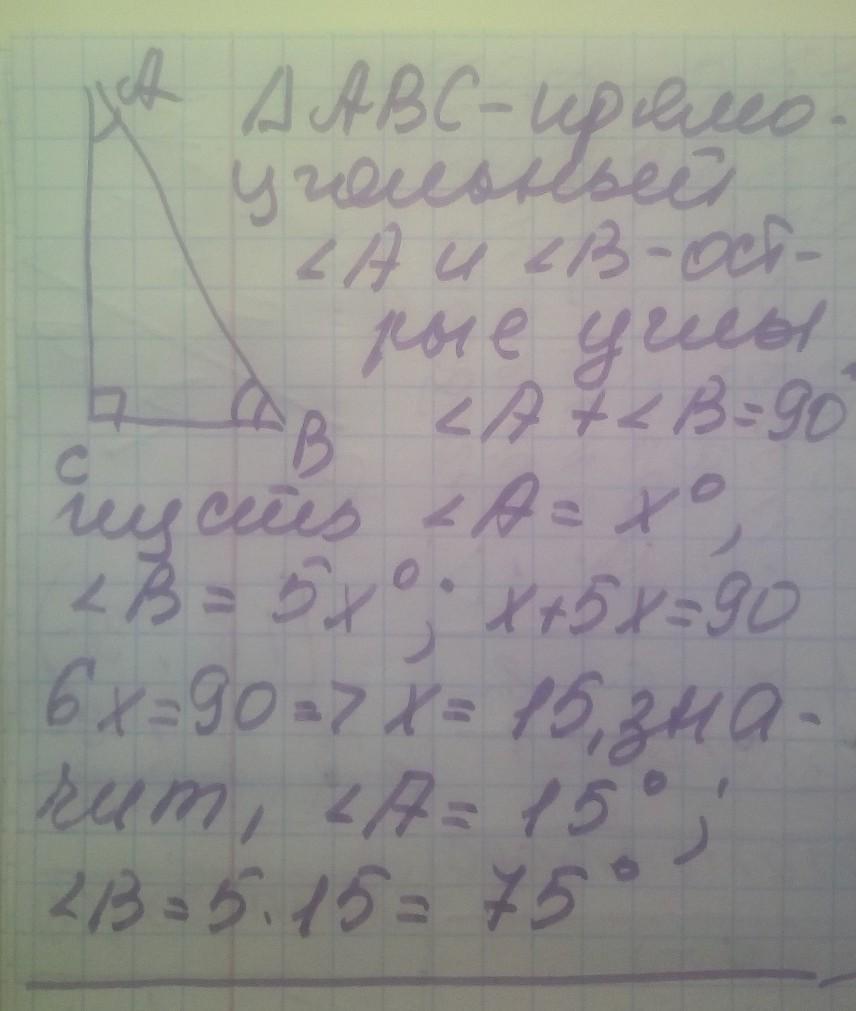 A
ΔABC - прямо-
угольный
<A и <B - ост-
рые углы
<A + <B = 90°
C
B
пусть <A = x°,
<B = 5x°; x+5x=90
6x=90 => x= 15, зна-
чит, <A = 15°;
<B = 5 · 15 = 75°